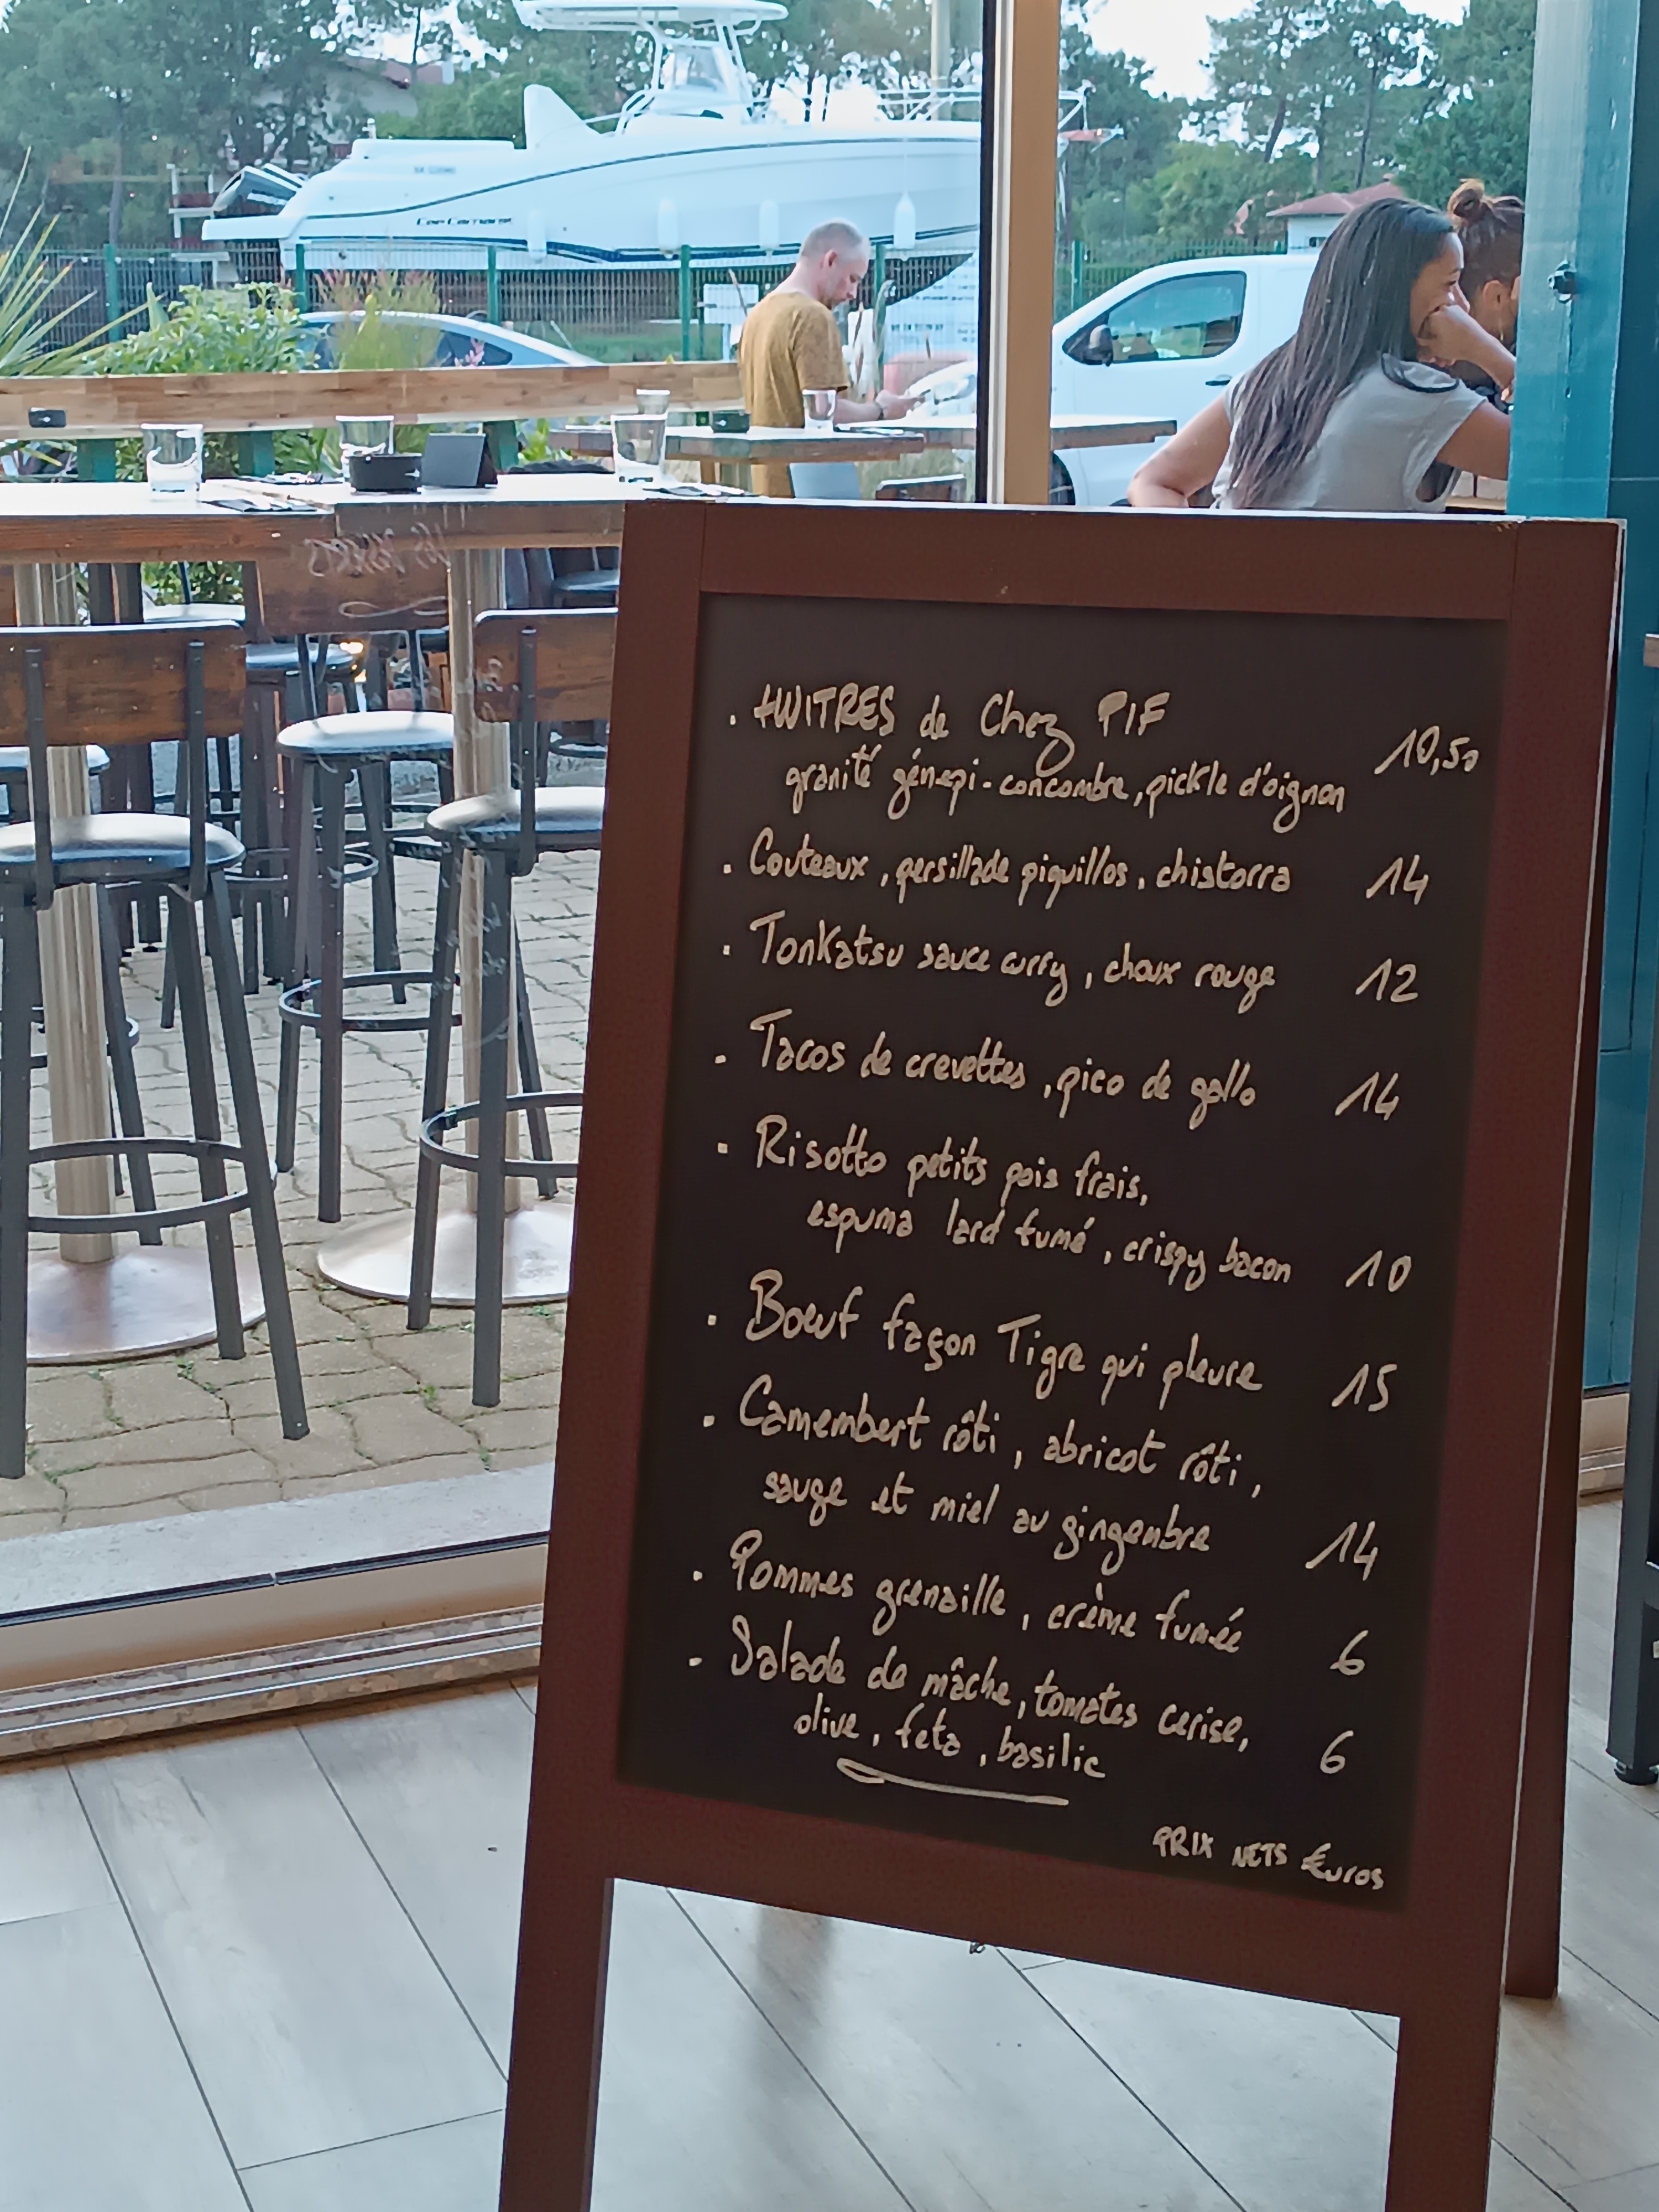 . HUITRES de Chez PIF 10,50
granité génepi-concombre, pickle d'oignon
. Couteaux, persillade piquillos, chistorra 14
. Tonkatsu sauce curry, choux rouge 12
. Tacos de crevettes, pico de gallo 14
. Risotto petits pois frais,
espuma lard fumé, crispy bacon 10
. Boeuf façon Tigre qui pleure 15
. Camembert rôti, abricot rôti,
sauge et miel au gingembre 14
. Pommes grenaille, crème fumée 6
. Salade de mâche, tomates cerise,
olive, feta, basilic 6
PRIX NETS €uros